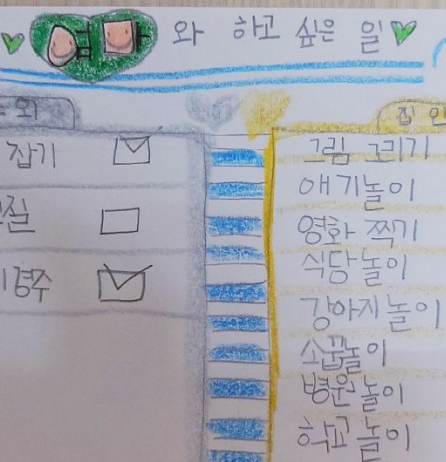 엄마와 하고 싶은 일
잡기
질
경주
그림 그리기
애기놀이
영화 찍기
식당놀이
강아지놀이
소꿉놀이
병원놀이
학교놀이